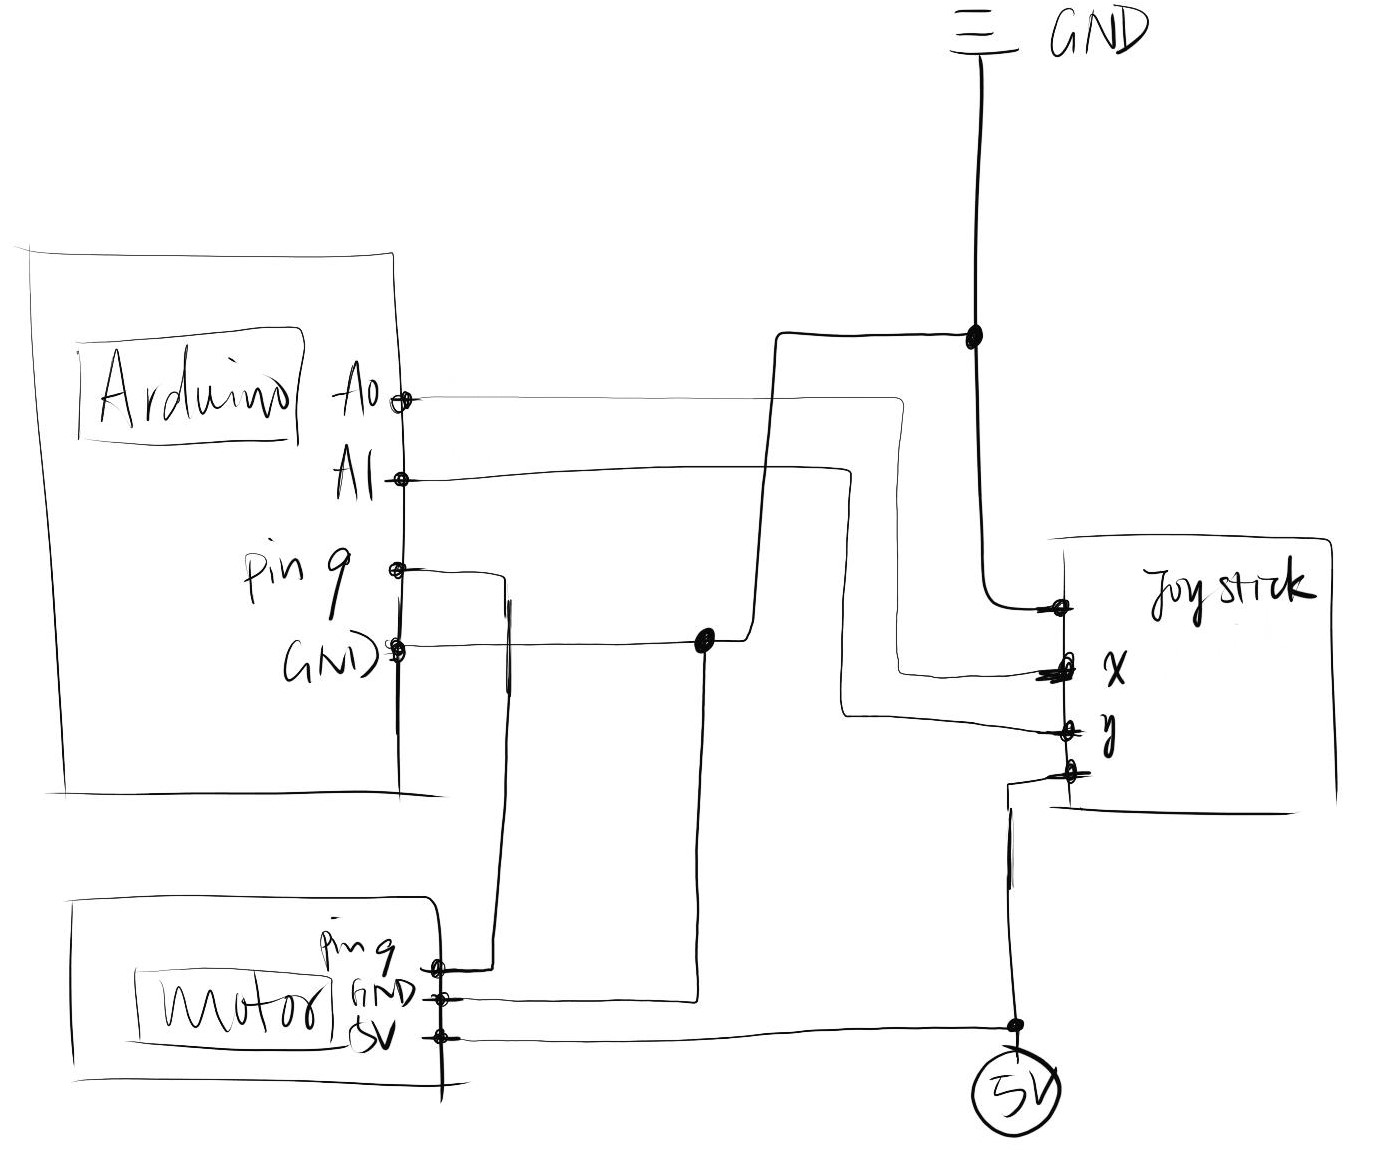 GND
Arduino
A0
A1
pin 9
GND
Joystick
x
y
pin 9
GND
Motor
5V
5V